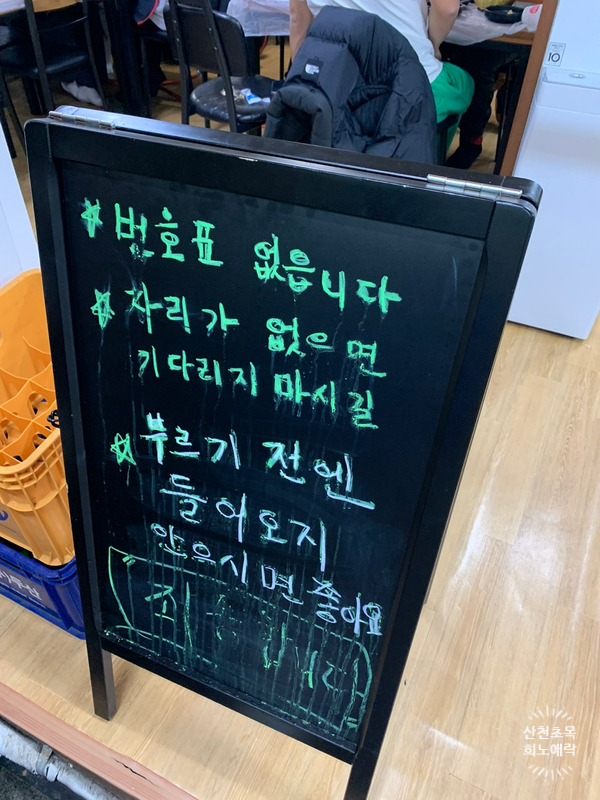 ☆ 번호표 없읍니다
☆ 자리가 없으면
기다리지 마시길
☆ 부르기 전엔
들어오지
않으시면 좋아요
(죄송합니다)
10
산천초목
희노애락